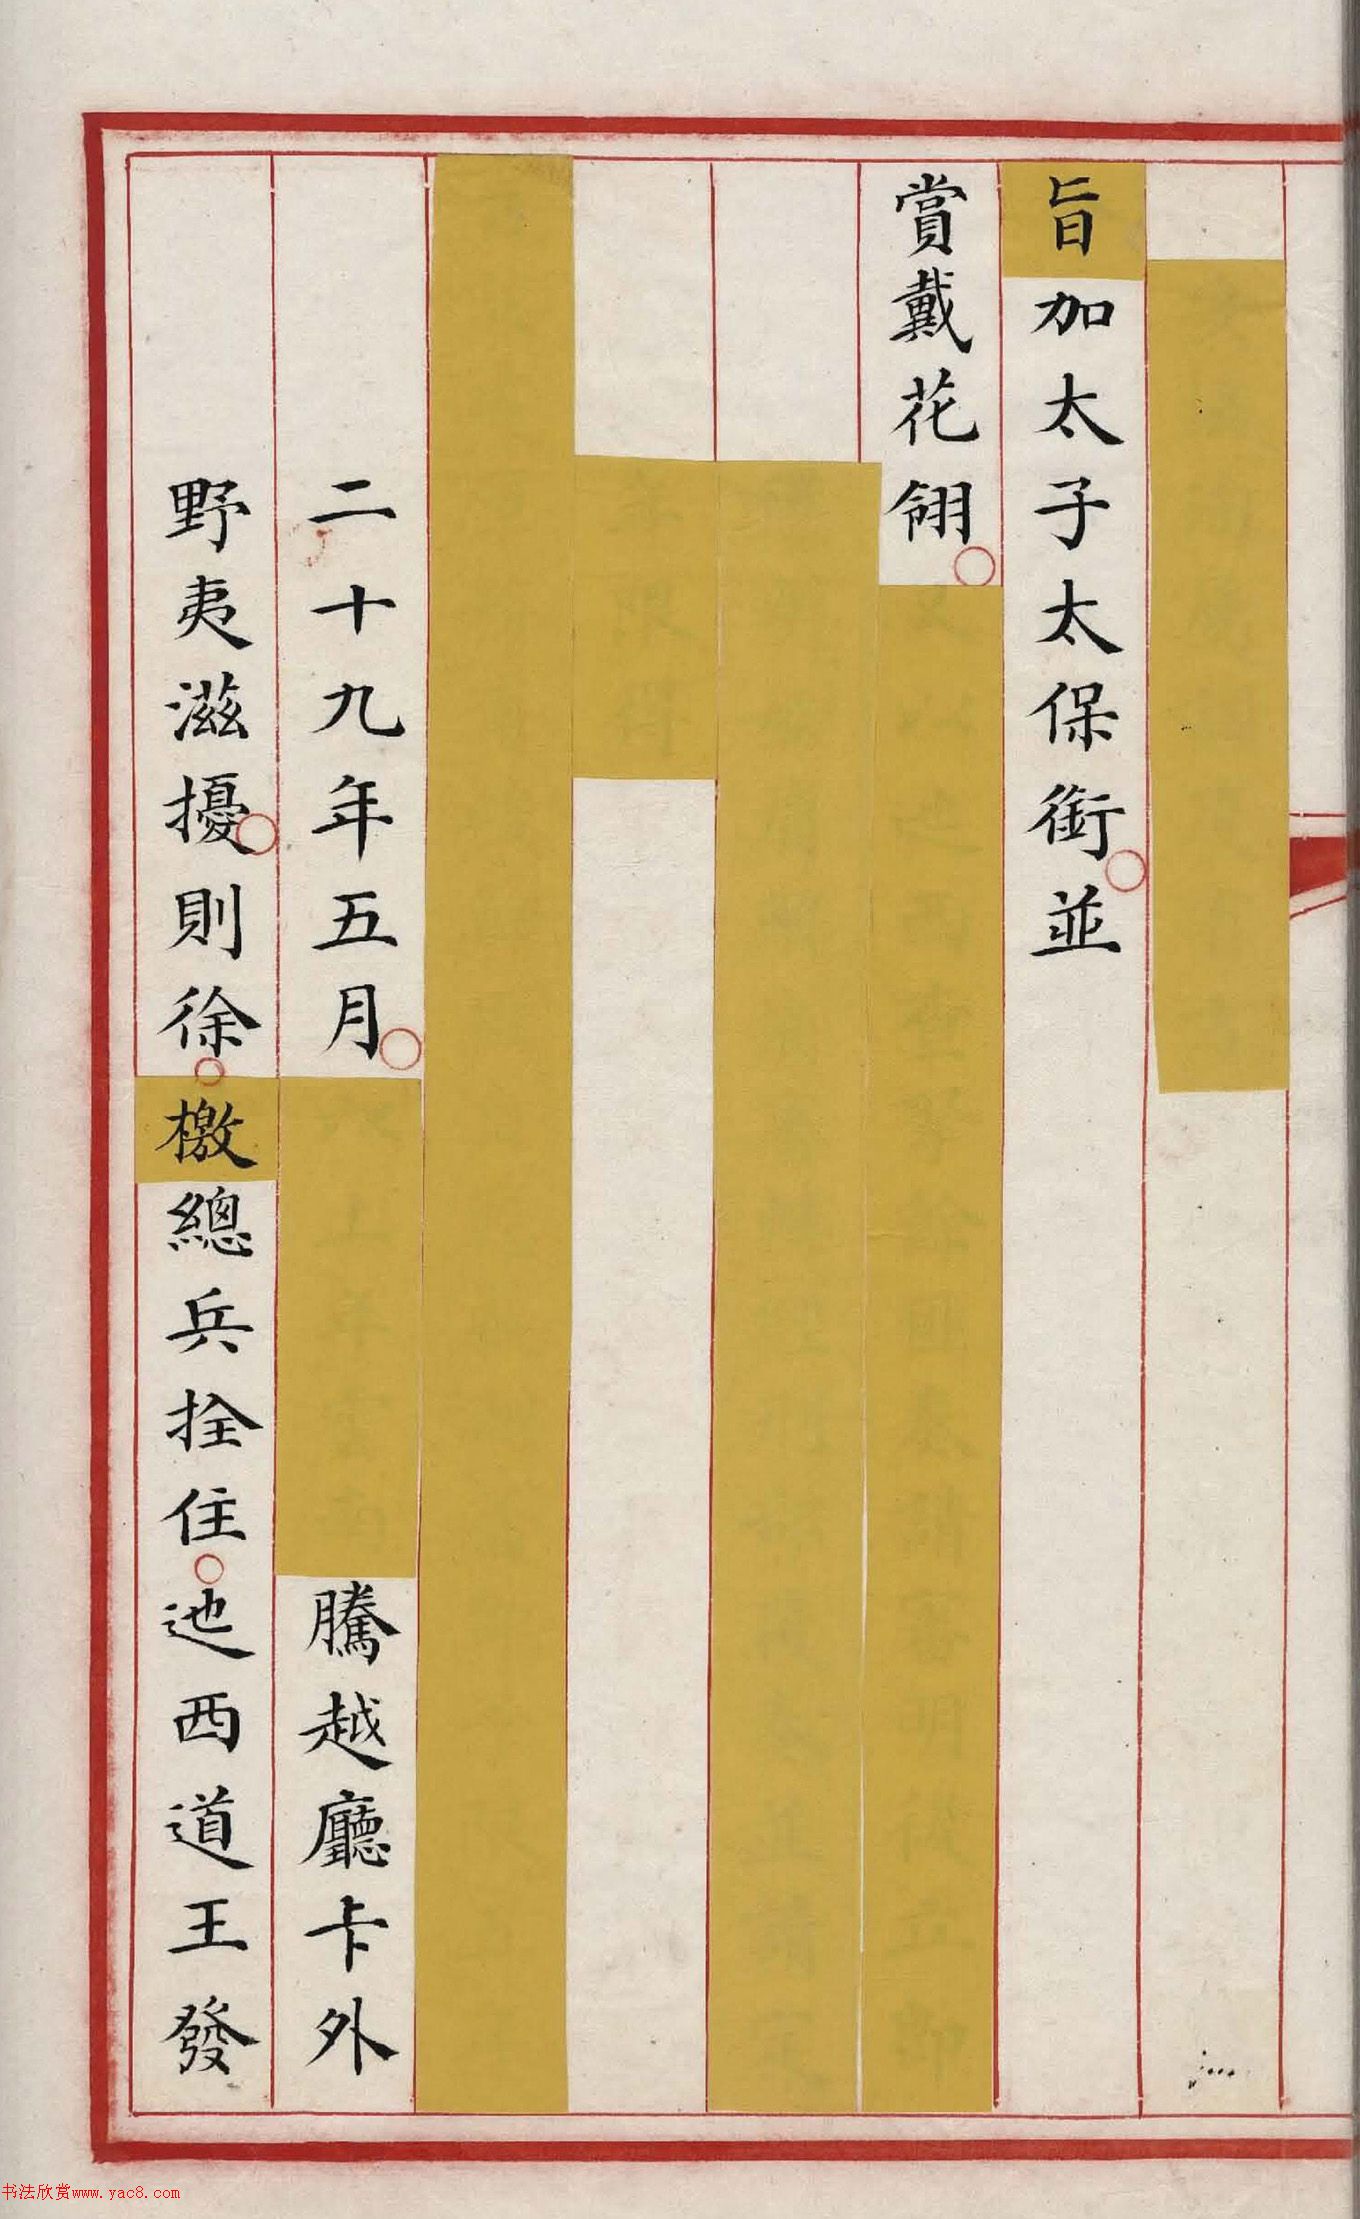 旨加太子太保銜並
賞戴花翎
二十九年五月騰越廳卡外
野夷滋擾則徐檄總兵拴住迆西道王發
书法欣赏www.yac8.com